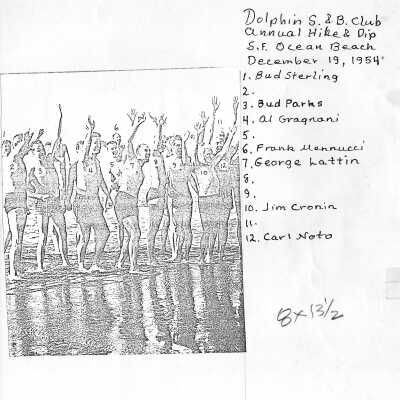 Dolphin S. & B. Club
Annual Hike & Dip
S.F. Ocean Beach
December 19, 1954
1. Bud Sterling
2.
3. Bud Parks
4. Al Gragnani
5.
6. Frank Mennucci
7. George Lattin
8.
9.
10. Jim Cronin
11.
12. Carl Noto
8x13 1/2